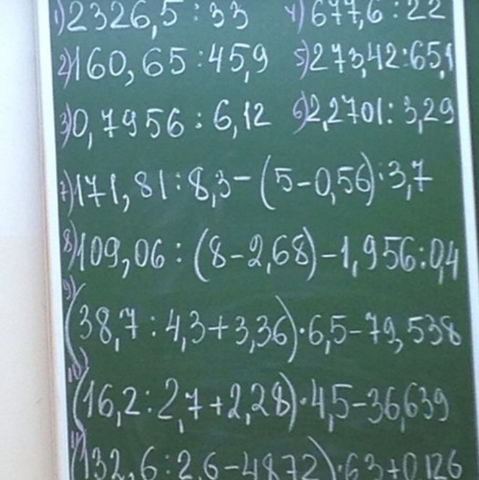 1) 2326,5 : 33 4) 677,6 : 22
2) 160,65 : 45,9 5) 273,42 : 65,1
3) 0,7956 : 6,12 6) 2,2701 : 3,29
7) 171,81 : 8,3 - (5 - 0,56) : 3,7
8) 109,06 : (8 - 2,68) - 1,956 : 0,4
9) (38,7 : 4,3 + 3,36) · 6,5 - 79,538
10) (16,2 : 2,7 + 2,28) · 4,5 - 36,639
11) (132,6 : 2,6 - 48,72) · 6,3 + 0,126